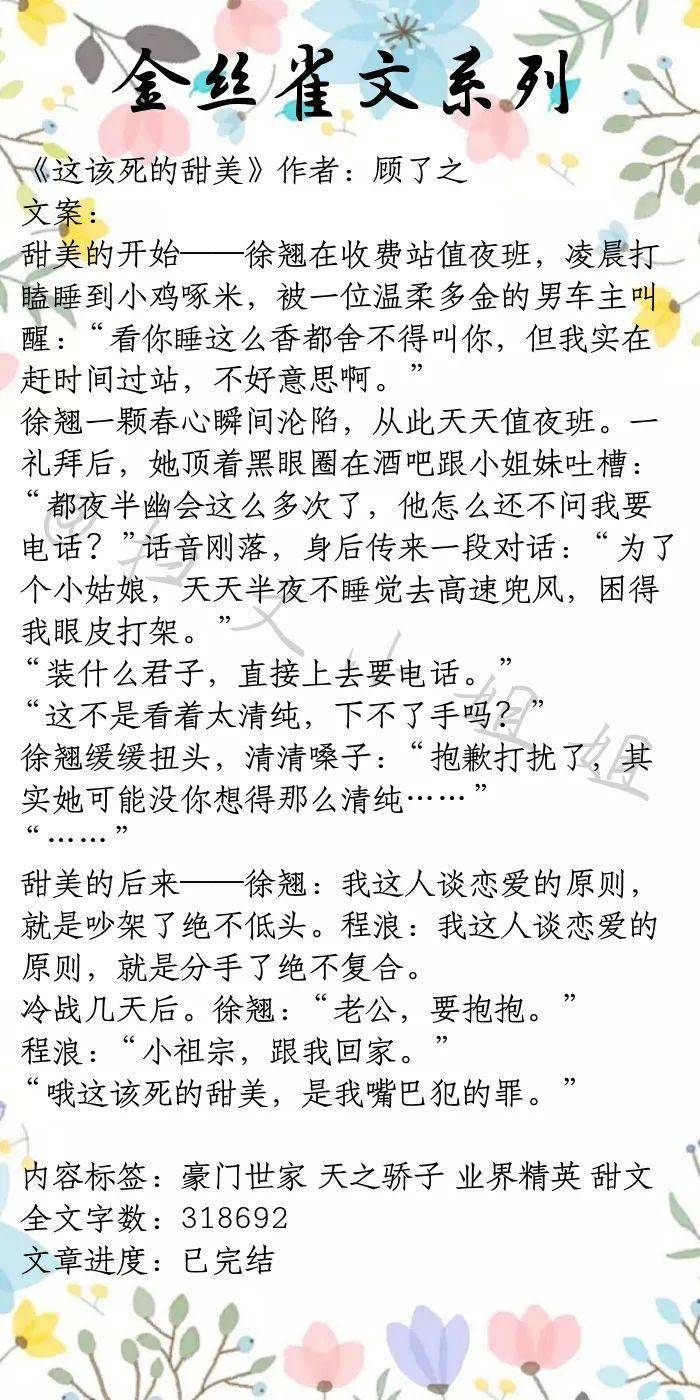 金丝雀文系列
《这该死的甜美》作者：顾了之
文案：
甜美的开始——徐翘在收费站值夜班，凌晨打
瞌睡到小鸡啄米，被一位温柔多金的男车主叫
醒：“看你睡这么香都舍不得叫你，但我实在
赶时间过站，不好意思啊。”
徐翘一颗春心瞬间沦陷，从此天天值夜班。一
礼拜后，她顶着黑眼圈在酒吧跟小姐妹吐槽：
“都夜半幽会这么多次了，他怎么还不问我要
电话？”话音刚落，身后传来一段对话：“为了
个小姑娘，天天半夜不睡觉去高速兜风，困得
我眼皮打架。”
“装什么君子，直接上去要电话。”
“这不是看着太清纯，下不了手吗？”
徐翘缓缓扭头，清清嗓子：“抱歉打扰了，其
实她可能没你想得那么清纯……”
“……”
甜美的后来——徐翘：我这人谈恋爱的原则，
就是吵架了绝不低头。程浪：我这人谈恋爱的
原则，就是分手了绝不复合。
冷战几天后。徐翘：“老公，要抱抱。”
程浪：“小祖宗，跟我回家。”
“哦这该死的甜美，是我嘴巴犯的罪。”
内容标签：豪门世家 天之骄子 业界精英 甜文
全文字数：318692
文章进度：已完结
@扫文小姐姐